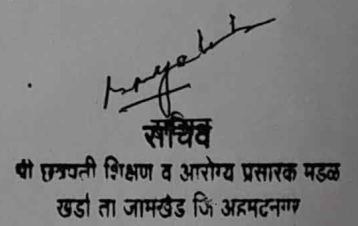 सचिव
श्री छत्रपती शिक्षण व आरोग्य प्रसारक मडळ
खर्डा ता जामखेड जि अहमदनगर